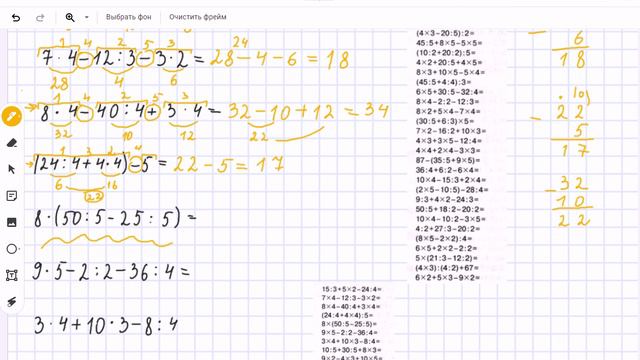 Выбрать фон Очистить фрейм
1 4 2 5 3
7·4-12:3-3·2 = 28-4-6=18
24
28 4 6
1 4 2 5 3
8·4-40:4+3·4= 32-10+12=34
32 10 12 22
1 3 2 4
(24:4+4·4)-5=22-5=17
6 16
22
8·(50:5-25:5)=
9·5-2:2-36:4=
3·4+10·3-8:4
(4×3-20:5):2=
45:5+8×5-5×5=
(10:2+20:2):5=
4×2+20:5+4×5=
8×3+10×5-5×4=
(45:5+4:4):3=
6×5+30:5-32:4=
8×4-2:2-12:3=
8×2+5×4-7×4=
(30:5+6:3)×5=
7×2-16:2+10×3=
4×3+3×5-12:4=
4×4+2×4-3×3=
87-(35:5+9×5)=
36:4+6:2-6×4=
10×4-15:3+2×4=
(2×5-10:5)-28:4=
9:3+4×2-24:3=
50:5+18:2-20:2=
10×4-10:2-3×5=
4:2+27:3-20:2=
(8×5-2×2):4=
6×5+2×2-2:2=
5×(21:3-12:2)=
(4×3):(4:2)+67=
6×2+5×3-9×2=
15:3+5×2-24:4=
7×4-12:3-3×2=
8×4-40:4+3×4=
(24:4+4×4):5=
8×(50:5-25:5)=
9×5-2:2-36:4=
3×4+10×3-8:4=
10:5+30:5+8×3=
9×2-4×3+10×5=
- 6
18
10
- 22
5
17
- 32
10
22